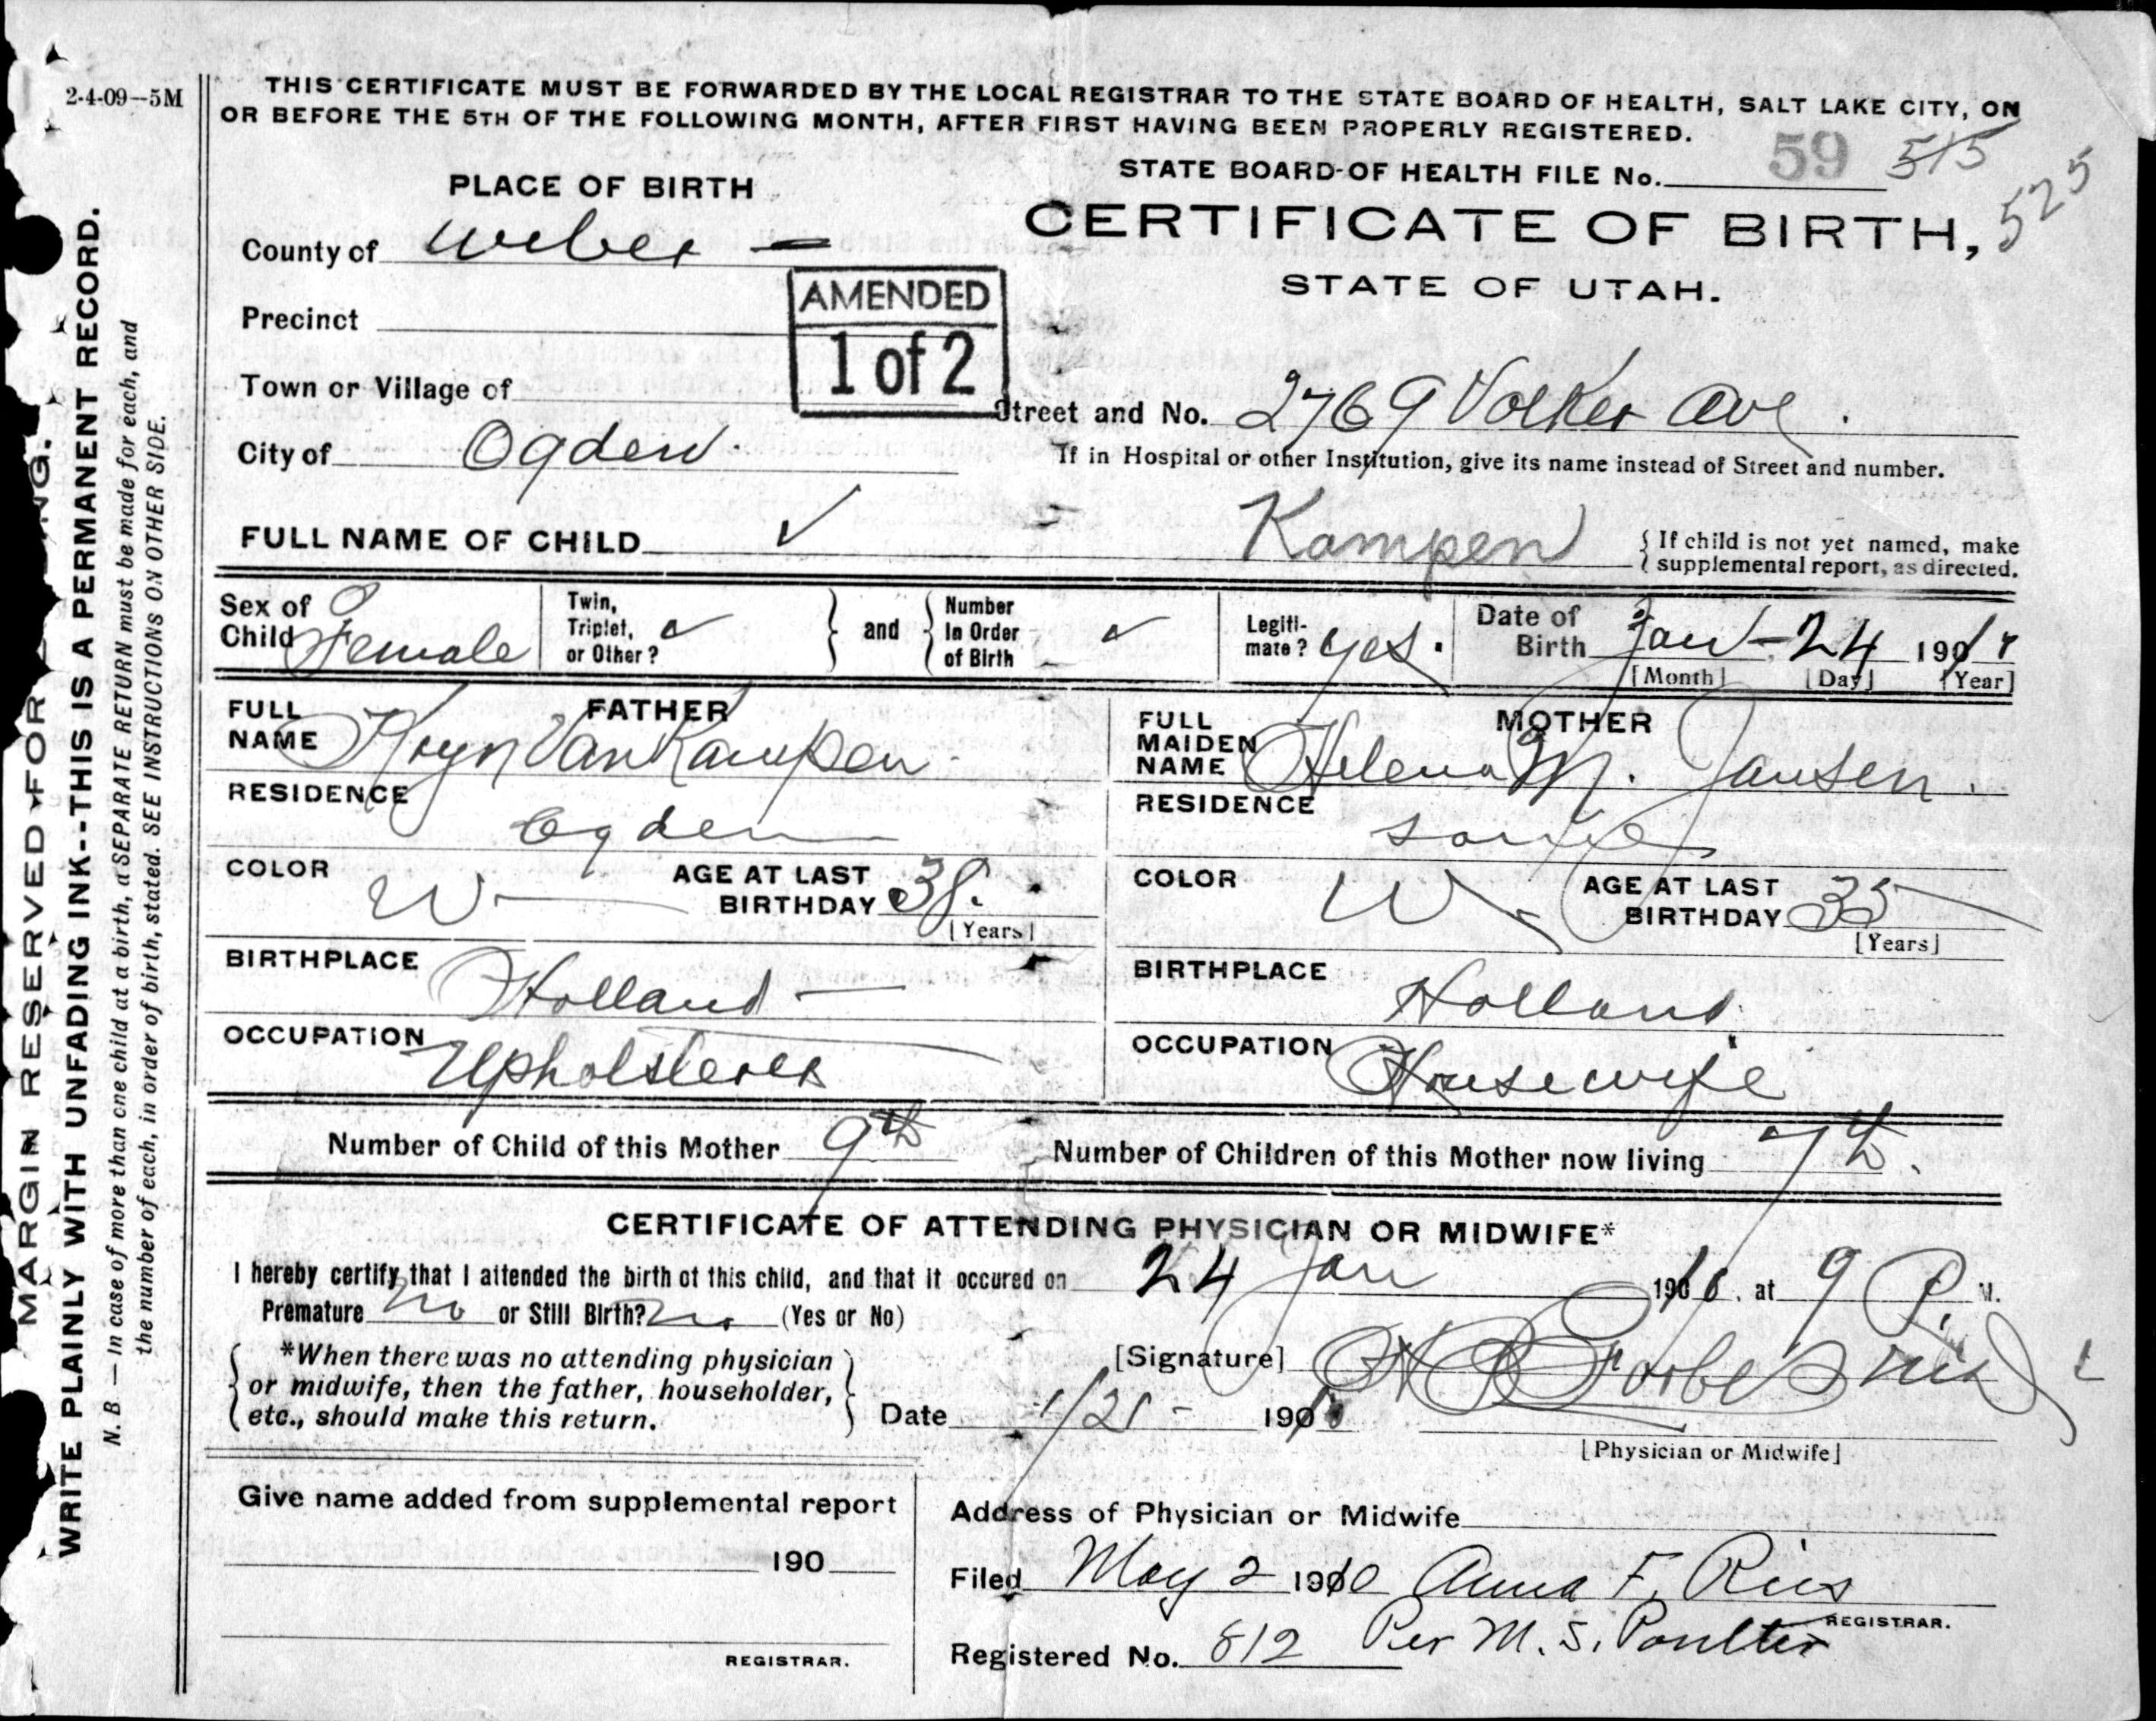 2-4-09—5M
THIS CERTIFICATE MUST BE FORWARDED BY THE LOCAL REGISTRAR TO THE STATE BOARD OF HEALTH, SALT LAKE CITY, ON
OR BEFORE THE 5TH OF THE FOLLOWING MONTH, AFTER FIRST HAVING BEEN PROPERLY REGISTERED.
STATE BOARD OF HEALTH FILE No. 59 515
525
PLACE OF BIRTH
CERTIFICATE OF BIRTH,
STATE OF UTAH.
County of Weber
AMENDED
1 of 2
Precinct
Town or Village of
Street and No. 2769 Volker Ave.
City of Ogden
If in Hospital or other Institution, give its name instead of Street and number.
FULL NAME OF CHILD ✓ Kampen
{ If child is not yet named, make
supplemental report, as directed.
Sex of Child Female
Twin, Triplet, or Other? ✓
and
Number In Order of Birth ✓
Legiti-mate? yes.
Date of Birth Jan - 24 190
[Month] [Day] [Year]
FATHER
FULL NAME Kryn Van Kampen
RESIDENCE
Ogden
COLOR W
AGE AT LAST BIRTHDAY 38.
[Years]
BIRTHPLACE Holland
OCCUPATION Upholsterer
MOTHER
FULL MAIDEN NAME Helena M. Jansen
RESIDENCE
same
COLOR W
AGE AT LAST BIRTHDAY 35
[Years]
BIRTHPLACE
Holland
OCCUPATION Housewife
Number of Child of this Mother 9th
Number of Children of this Mother now living 7th.
CERTIFICATE OF ATTENDING PHYSICIAN OR MIDWIFE*
I hereby certify that I attended the birth of this child, and that it occured on 24 Jan 1910. at 9 P. M.
Premature no or Still Birth? no (Yes or No)
{ *When there was no attending physician
or midwife, then the father, householder,
etc., should make this return. }
[Signature] Forbes
Date 190
[Physician or Midwife]
Give name added from supplemental report
190
REGISTRAR.
Address of Physician or Midwife
Filed May 2 1910 Anna F. Ries
REGISTRAR.
Registered No. 812 Per M. S. Poulter
MARGIN RESERVED FOR
WRITE PLAINLY WITH UNFADING INK--THIS IS A PERMANENT RECORD.
N. B.—In case of more than one child at a birth, a SEPARATE RETURN must be made for each, and
the number of each, in order of birth, stated. SEE INSTRUCTIONS ON OTHER SIDE.